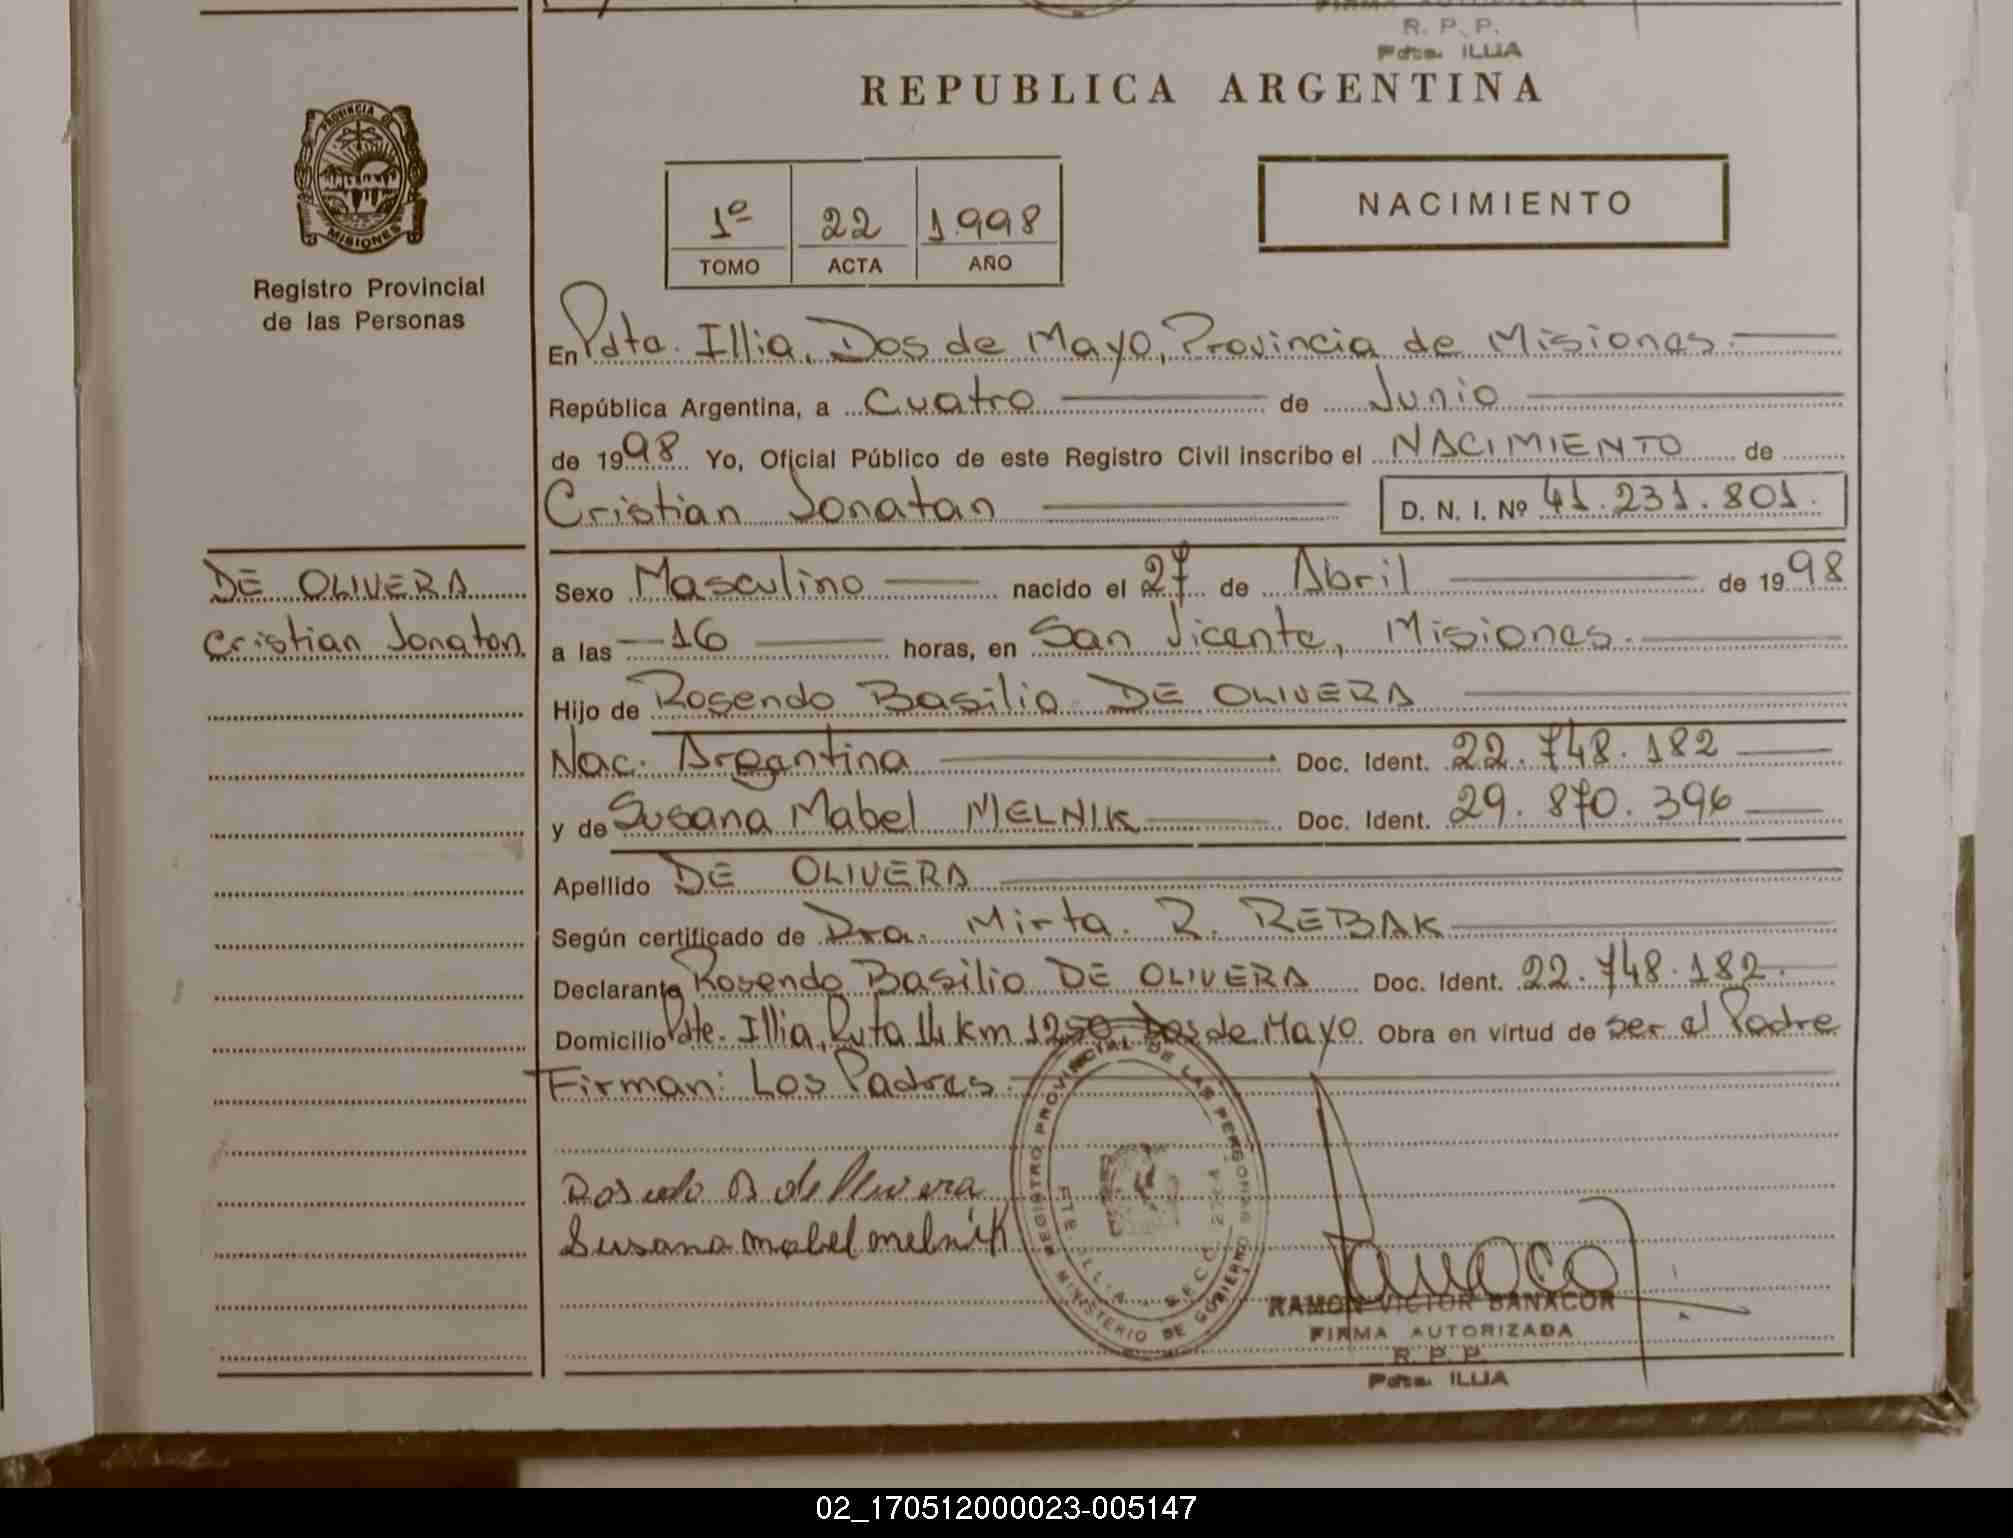 FIRMA AUTORIZADA
R. P. P.
Pdte. ILLIA
REPUBLICA ARGENTINA
PROVINCIA DE
MISIONES
Registro Provincial
de las Personas
1º 22 1.998
TOMO ACTA AÑO
NACIMIENTO
En Pdte. Illia, Dos de Mayo, Provincia de Misiones.
República Argentina, a cuatro de Junio
de 1998 Yo, Oficial Público de este Registro Civil inscribo el NACIMIENTO de
Cristian Jonatan D. N. I. Nº 41.231.801.
DE OLIVERA
Cristian Jonatan
Sexo Masculino nacido el 27 de Abril de 1998
a las 16 horas, en San Vicente, Misiones.
Hijo de Rosendo Basilio DE OLIVERA
Nac. Argentina Doc. Ident. 22.748.182
y de Susana Mabel MELNIK Doc. Ident. 29.870.396
Apellido DE OLIVERA
Según certificado de Dra. Mirta. R. REBAK
Declarante Rosendo Basilio DE OLIVERA Doc. Ident. 22.748.182.
Domicilio Pdte. Illia, Ruta 14 km 1250 Dos de Mayo. Obra en virtud de ser el Padre
Firman: Los Padres.
REGISTRO PROVINCIAL DE LAS PERSONAS
MINISTERIO DE GOBIERNO
Susana mabel melnik
RAMON VICTOR BANACOR
FIRMA AUTORIZADA
R. P. P.
Pdte. ILLIA
02_170512000023-005147